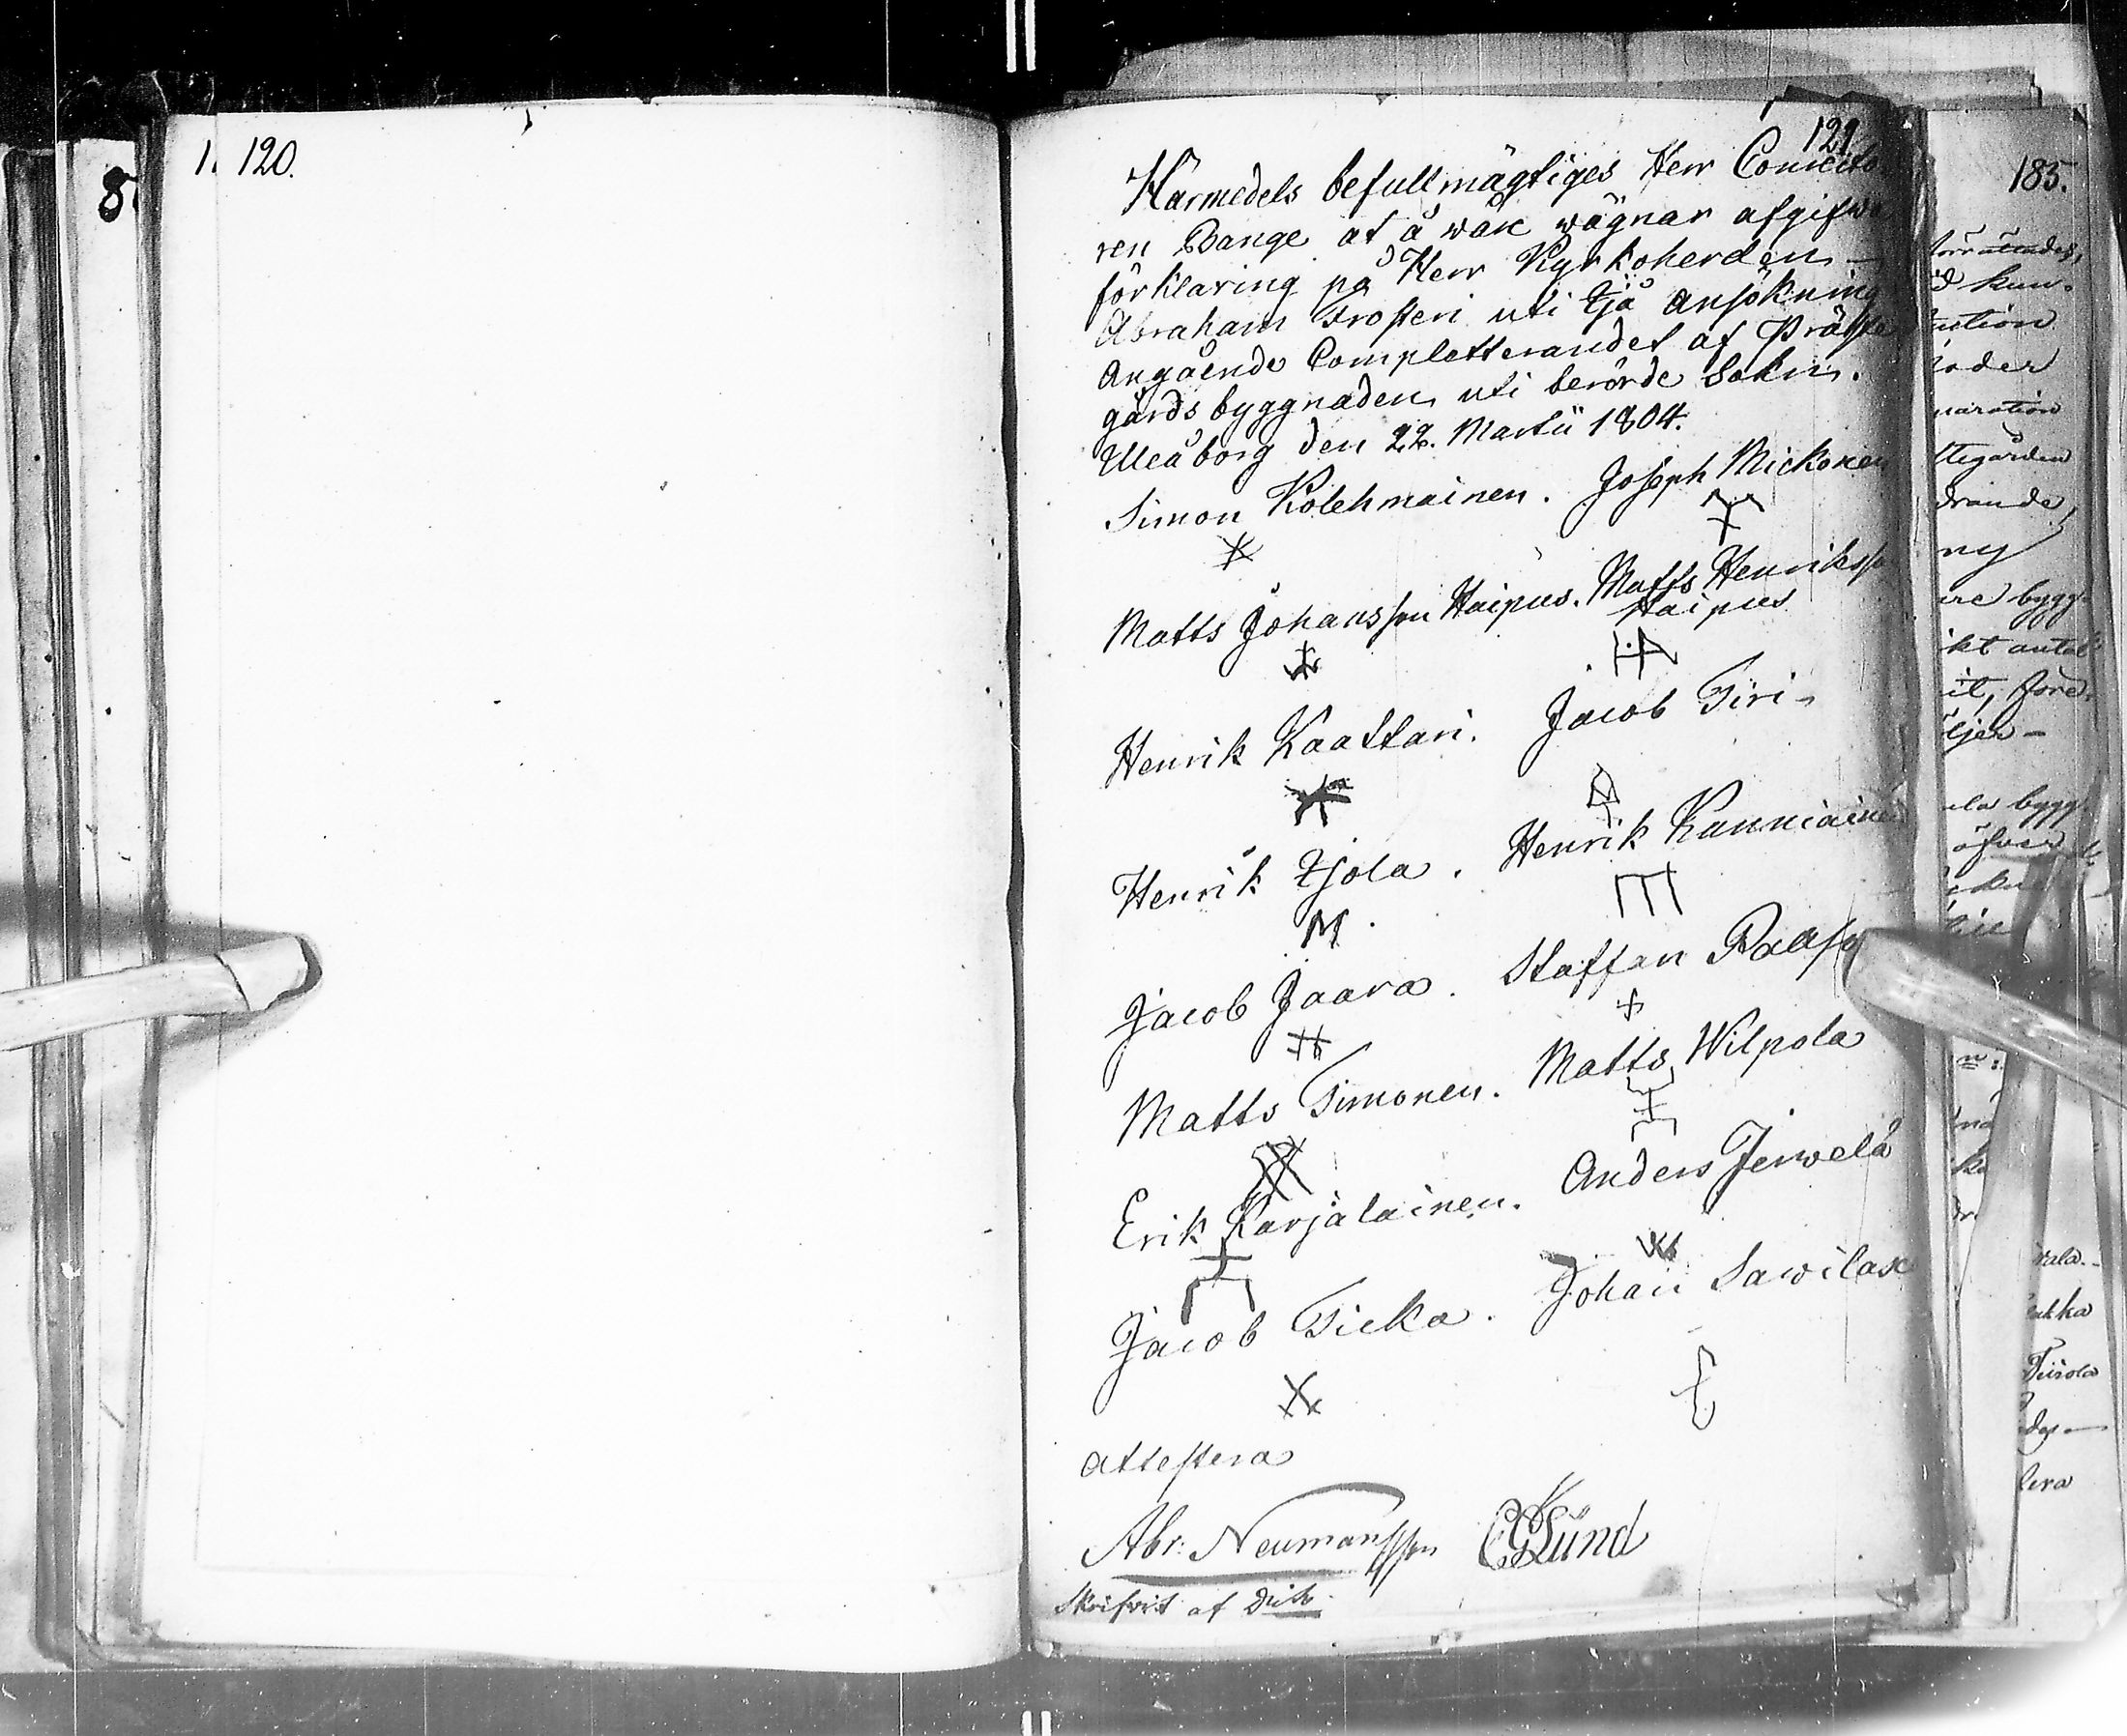 120.
121
Härmedels befullmägtiges Herr Concito
ren Bange at å våre wägnar afgifwa
förklaring på Herr Kyrkoherden
Abraham Frosteri uti Ijå ansökning
angående Completterandet af Präste
gårds byggnaden uti berörde Sokn.
Uleåborg den 22. Martii 1804.
Simon Kolehmainen. Joseph Mickonen
Matts Johansson Haipus. Matts Henriksson
Haipus
Henrik Kaattari. Jacob Tiri
Henrik Ijola. Henrik Kanniainen
Jacob Jaara. Staffan Paaso
Matts Timonen. Matts Wilpola
Erik Karjalainen. Anders Jerwelä
Jacob Ticka. Johan Sawilax
attestera
Abr: Neumansson CGLund
Skrifvit af Dito
185.